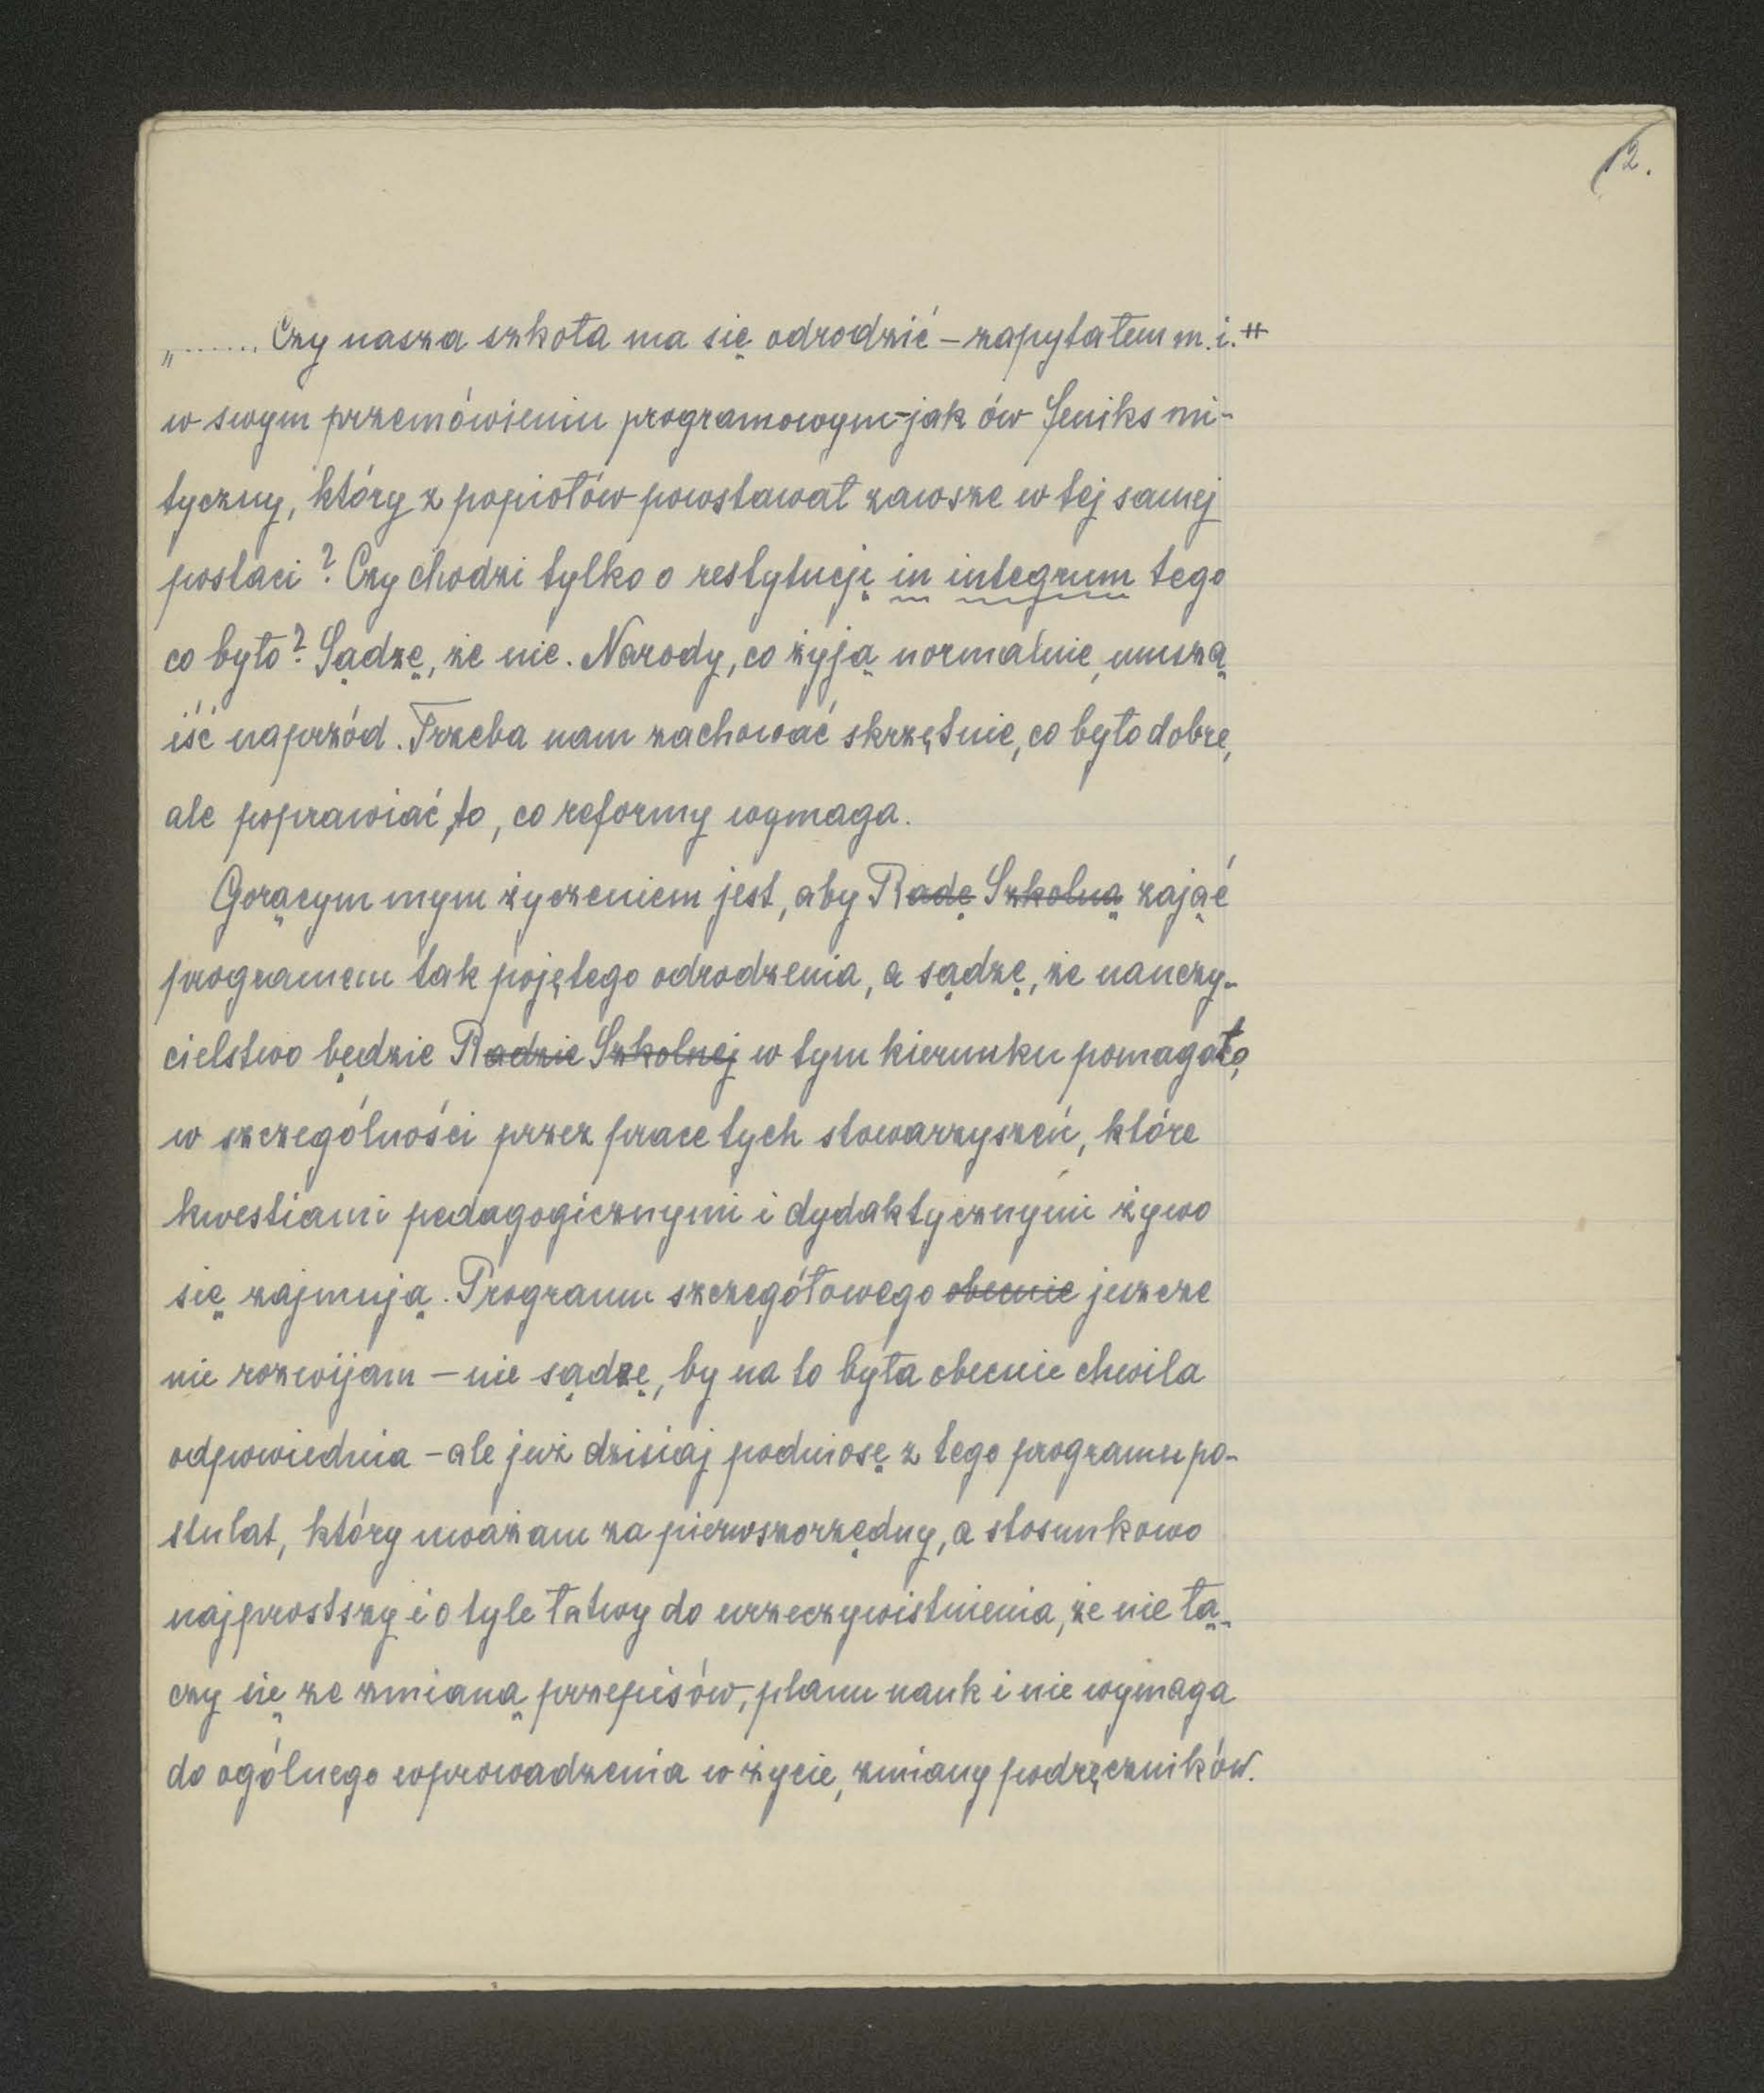 12.
„....... Czy nasza szkoła ma się odrodzić – zapytałem m.i. #
w swym przemówieniu programowym – jak ów feniks mi-
tyczny, który z popiołów powstawał zawsze w tej samej
postaci? Czy chodzi tylko o restytucję in integrum tego
co było? Sądzę, że nie. Narody, co żyją normalnie, muszą
iść naprzód. Trzeba nam zachować skrzętnie, co było dobre,
ale poprawiać to, co reformy wymaga.
Gorącym mym życzeniem jest, aby Radę Szkolną zająć
programem tak pojętego odrodzenia, a sądzę, że nauczy-
cielstwo będzie Radzie Szkolnej w tym kierunku pomagało,
w szczególności przez prace tych stowarzyszeń, które
kwestiami pedagogicznymi i dydaktycznymi żywo
się zajmują. Programu szczegółowego obecnie jeszcze
nie rozwijam – nie sądzę, by na to była obecnie chwila
odpowiednia – ale już dzisiaj podniosę z tego programu po-
stulat, który uważam za pierwszorzędny, a stosunkowo
najprostszy i o tyle łatwy do urzeczywistnienia, że nie łą-
czy się ze zmianą przepisów, planu nauk i nie wymaga
do ogólnego wprowadzenia w życie, zmiany podręczników.